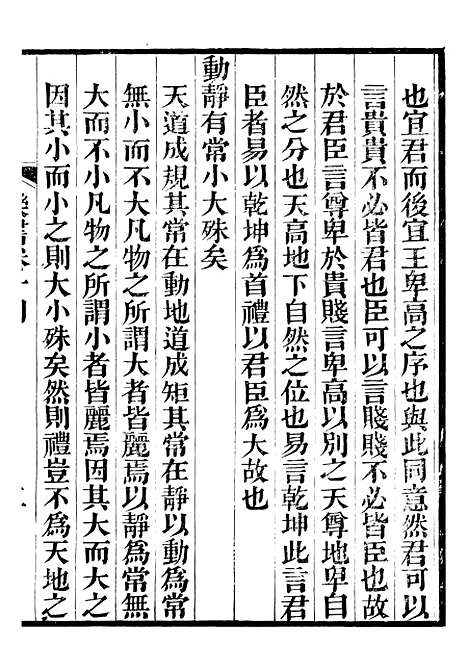 也宜君而後宜王卑高之序也與此同意然君可以
言貴貴不必皆君也臣可以言賤賤不必皆臣也故
於君臣言尊卑於貴賤言卑高以別之天尊地卑自
然之分也天高地下自然之位也易言乾坤此言君
臣者易以乾坤為首禮以君臣為大故也
動靜有常小大殊矣
天道成規其常在動地道成矩其常在靜以動為常
無小而不大凡物之所謂大者皆麗焉以靜為常無
大而不小凡物之所謂小者皆麗焉因其大而大之
因其小而小之則大小殊矣然則禮豈不為天地之